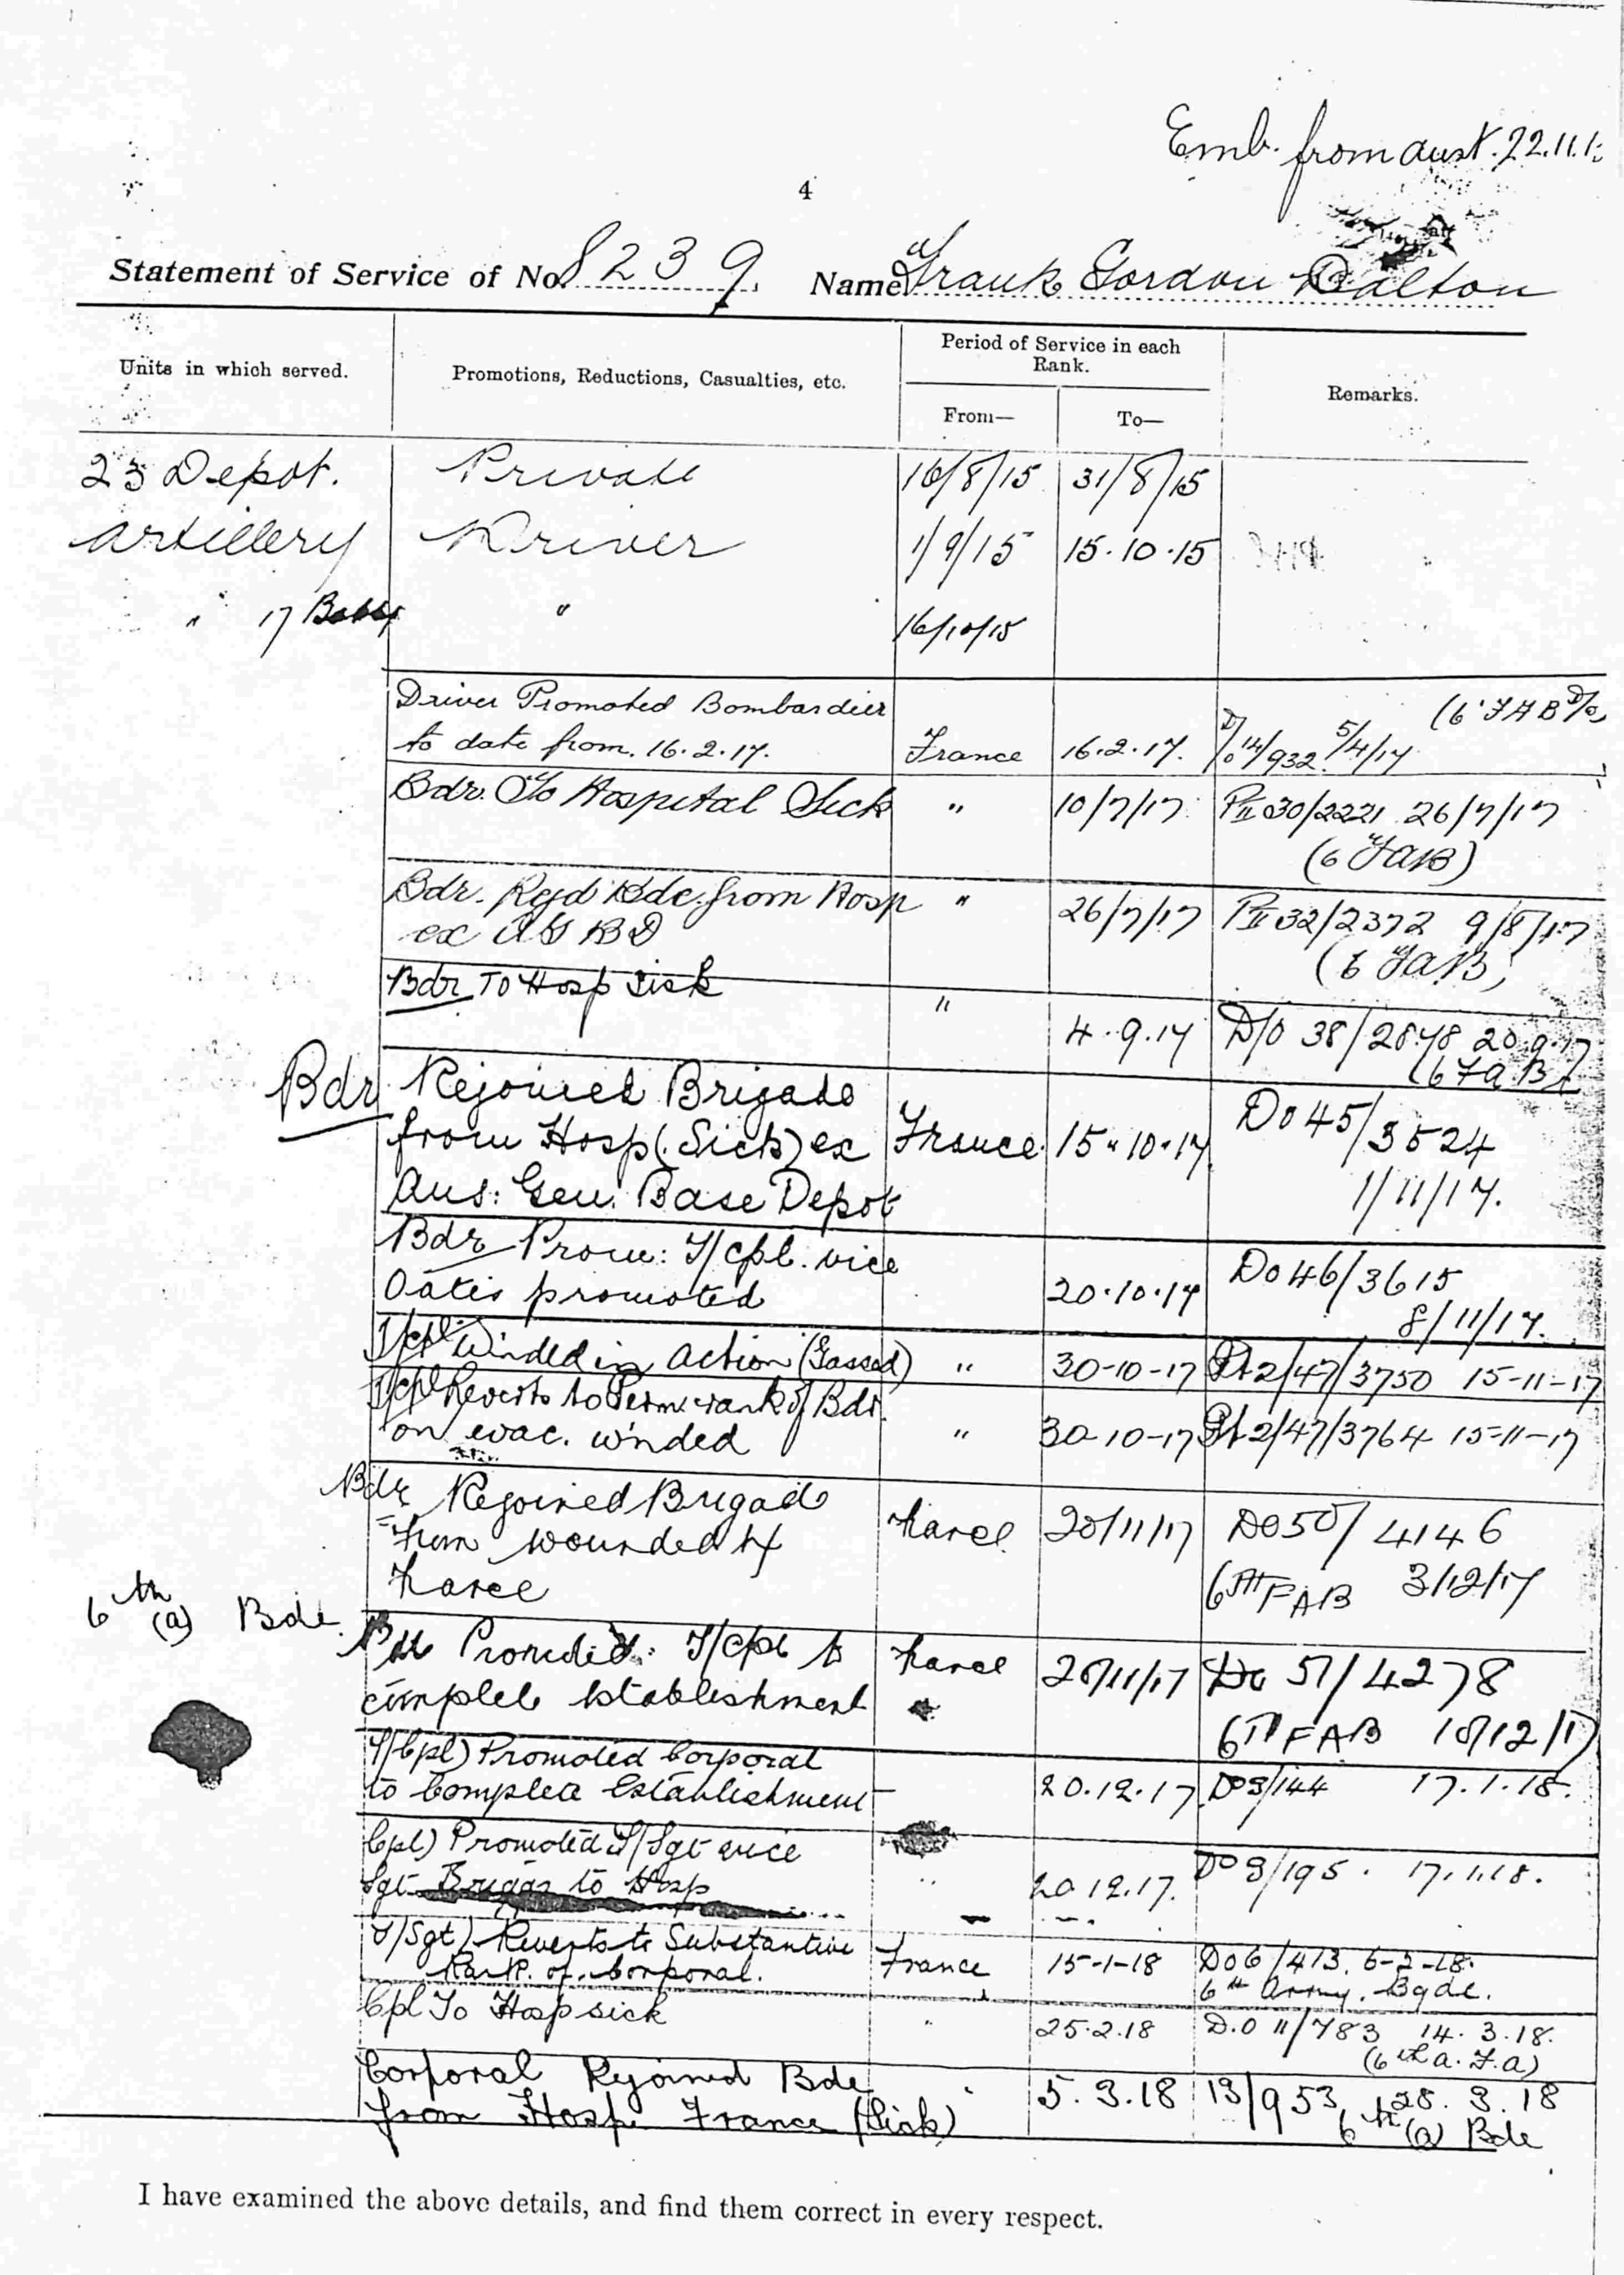 Emb. from Aust. 22.11.1
4
Statement of Service of No. 8239 Name Frank Gordon Dalton
Units in which served. Promotions, Reductions, Casualties, etc. Period of Service in each Rank. Remarks.
From— To—
23 Depot. Private 16/8/15 31/8/15
Artillery Driver 1/9/15 15.10.15
" 17 " 16/10/15
Driver Promoted Bombardier (6 FAB D/o)
to date from. 16.2.17. France 16.2.17. D/o 14/932 5/4/17
Bdr. To Hospital Sick " 10/7/17 PII 30/2221 26/7/17
(6 FAB)
Bdr. Rejd Bde. from Hosp " 26/7/17 PII 32/2372 9/8/17
ex AGBD (6 FAB)
Bdr To Hosp Sick "
4.9.17 D/O 38/2878 20.9.17
(6 FAB)
Bdr Rejoined Brigade Do 45/3524
from Hosp (Sick) ex France. 15.10.17
Aus: Gen. Base Depot 1/11/17.
Bdr Prom: T/Cpl. vice Do 46/3615
Oates promoted 20.10.17 8/11/17.
T/Cpl W'nded in Action (Gassed) " 30-10-17 Pt 2/47/3750 15-11-17
T/Cpl Reverts to Perm: rank of Bdr.
on evac. w'nded " 30-10-17 Pt 2/47/3764 15-11-17
Bdr Rejoined Brigade
from wounded 20/11/17 Do 50/4146
6TH FAB 3/12/17
6th (a) Bde.
Promoted: T/Cpl to 20/11/17 Do 51/4278
complete Establishment 6TH FAB 10/12/17
T/Cpl) Promoted Corporal
to Complete Establishment 20.12.17. Do 3/144 17.1.18.
Cpl) Promoted T/Sgt vice
Sgt to Hosp " 20.12.17. Do 3/195. 17.1.18.
T/Sgt) Reverts to Substantive France 15-1-18 Do 6/413. 6-2-18.
Rank. of. Corporal. 6th Army. Bgde.
Cpl To Hosp sick " 25.2.18 D.O 11/783 14.3.18.
(6th A.F.A)
Corporal Rejoined Bde 5.3.18 13/953 28.3.18
from Hosp. France (Sick) 6th (a) Bde
I have examined the above details, and find them correct in every respect.